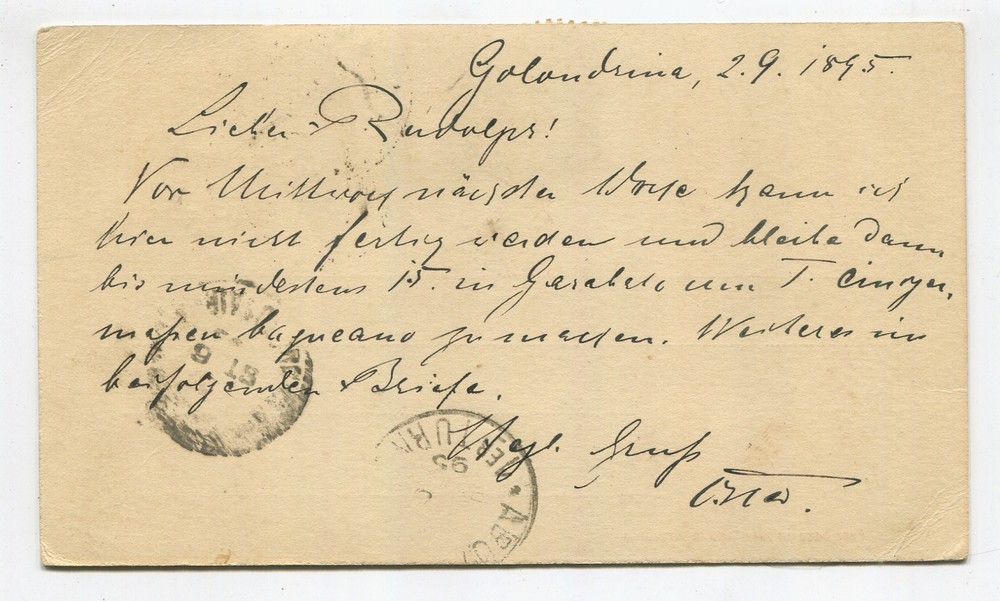 Golondrina, 2.9.1895.
Lieber Rudolph!
Vor Mittwoch nächster Woche kann ich
hier nicht fertig werden und bleibe dann
bis mindestens 15. in Garabato um T. einiger-
maßen baqueano zu machen. Weiteres im
beifolgenden Briefe.
Hzgl. Gruß
Otto.
95
ABO